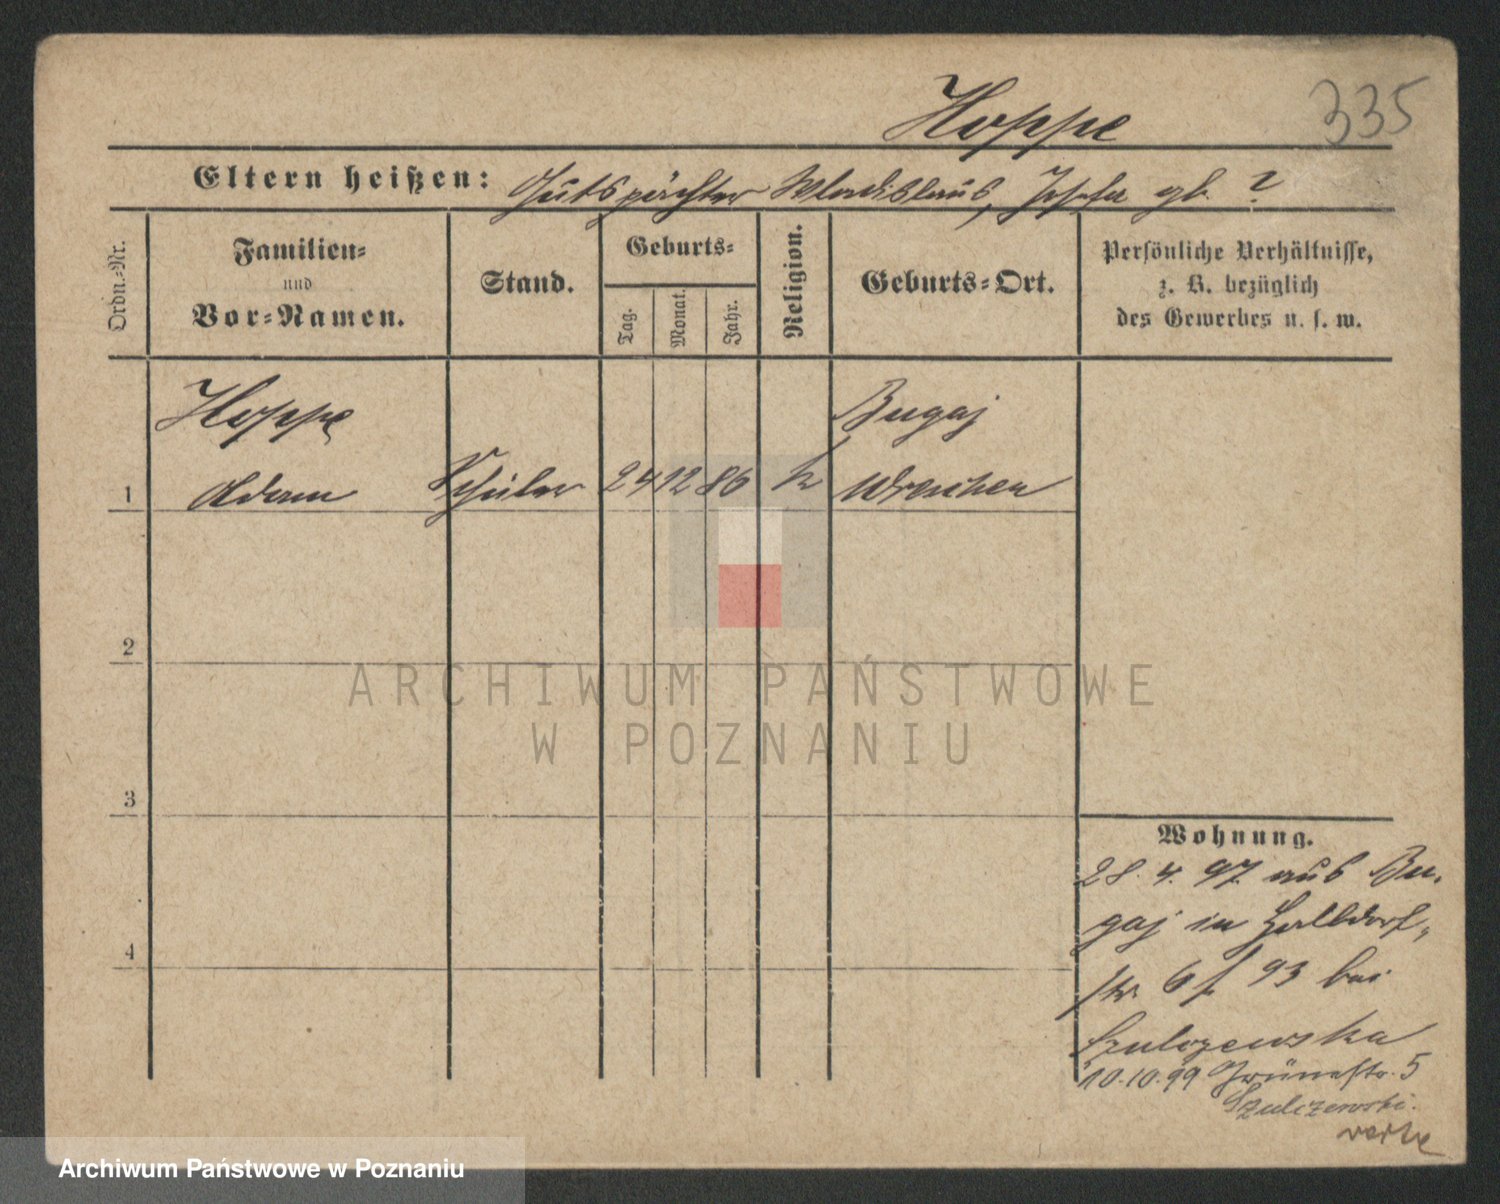 Hoppe
335
Eltern heißen: Gutspächter Wladislaus, Josefa gb. ?
Ordn.-Nr.
Familien-
und
Vor-Namen.
Stand.
Geburts-
Tag.
Monat.
Jahr.
Religion.
Geburts-Ort.
Persönliche Verhältnisse,
z. B. bezüglich
des Gewerbes u. s. w.
Hoppe
Bugaj
1 Adam Schüler 24 12 86 k Wreschen
2
3
4
Wohnung.
28. 4. 97 aus Bu-
gaj in Halbdorf-
str. 6 f 93 bei
Szulczewska
10.10.99 Grünestr. 5
Szulczewski.
verte
ARCHIWUM PAŃSTWOWE
W POZNANIU
Archiwum Państwowe w Poznaniu